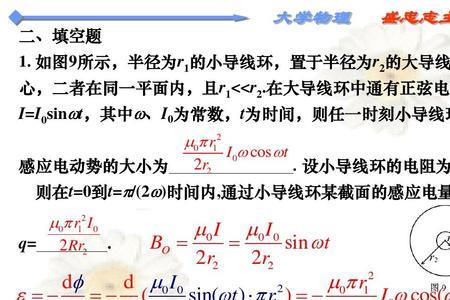 大学物理
二、填空题
1. 如图9所示，半径为r₁的小导线环，置于半径为r₂的大导线
心，二者在同一平面内，且r₁<<r₂.在大导线环中通有正弦电
I=I₀sinωt，其中ω、I₀为常数，t为时间，则任一时刻小导线环
感应电动势的大小为 μ₀πr₁²/2r₂ I₀ω cos ωt . 设小导线环的电阻为
则在t=0到t=π/(2ω)时间内,通过小导线环某截面的感应电量
q= μ₀πr₁²I₀/2Rr₂ . B_O = μ₀I/2r₂ = μ₀I₀/2r₂ sin ωt
r₂
图 9
ε = − dφ/dt = − d/dt (μ₀I₀/2r₂ sin(ωt)·πr₁²) = −μ₀πr₁²/2r₂ I₀ω cos(ω